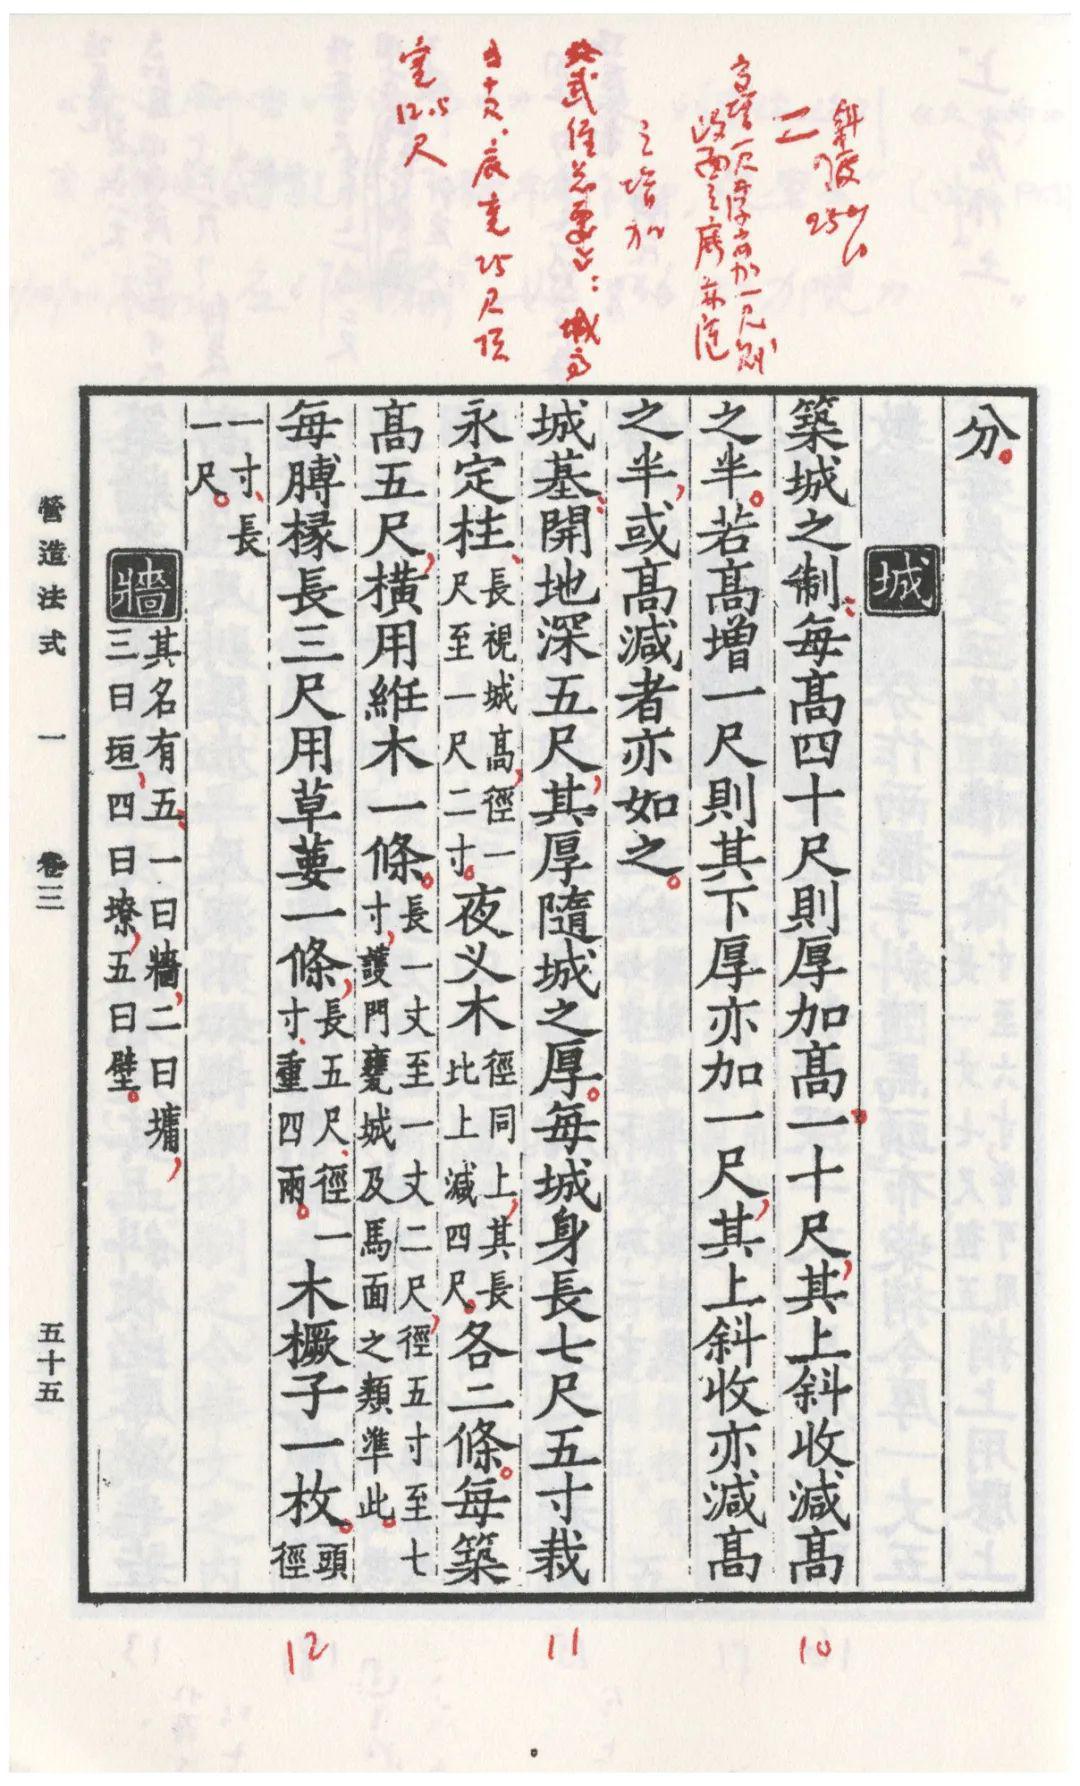 斜度
25%
二
高增一尺厚亦加一尺则
之增加
武经总要上：城高
五十尺，底宽25尺顶
宽
12.5
尺
分。
城
築城之制：每高四十尺則厚加高一十尺，其上斜收減高
之半。若高增一尺則其下厚亦加一尺，其上斜收亦減高
之半，或高減者亦如之。
城基：開地深五尺，其厚隨城之厚。每城身長七尺五寸栽
永定柱、長視城高，徑一尺至一尺二寸。夜义木徑同上，其長比上減四尺。各二條。每築
高五尺，橫用絍木一條。長一丈至一丈二尺，徑五寸至七寸，護門甕城及馬面之類準此。
每膊椽長三尺用草葽一條，長五尺、徑一寸、重四兩。木橛子一枚。頭徑
一寸、長一尺。
牆其名有五：一曰牆，二曰墉，三曰垣，四曰㙩，五曰壁。
營造法式 一 卷三 五十五
10
11
12